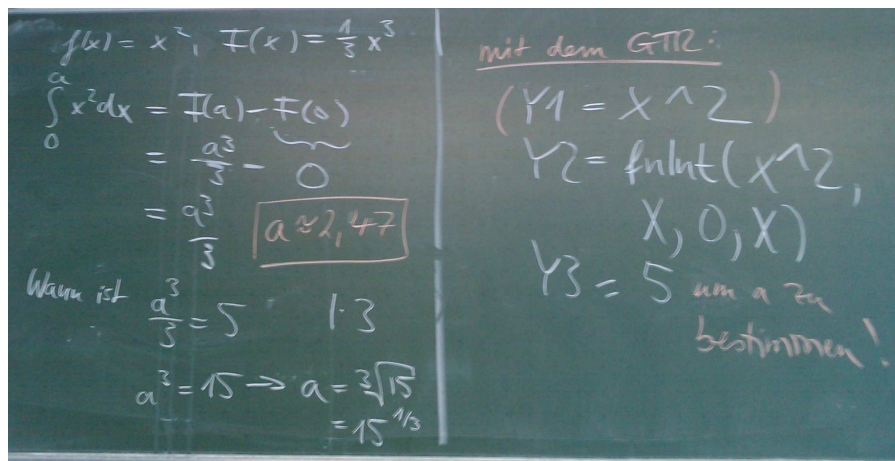 f(x) = x², I(x) = 1/3 x³
∫₀ᵃ x²dx = I(a) - I(0)
= a³/3 - 0
= a³/3
a ≈ 2,47
Wann ist
a³/3 = 5 |·3
a³ = 15 → a = ³√15
= 15^1/3
mit dem GTR:
(Y1 = X^2)
Y2 = fnInt(X^2,
X, 0, X)
Y3 = 5 um a zu
bestimmen!